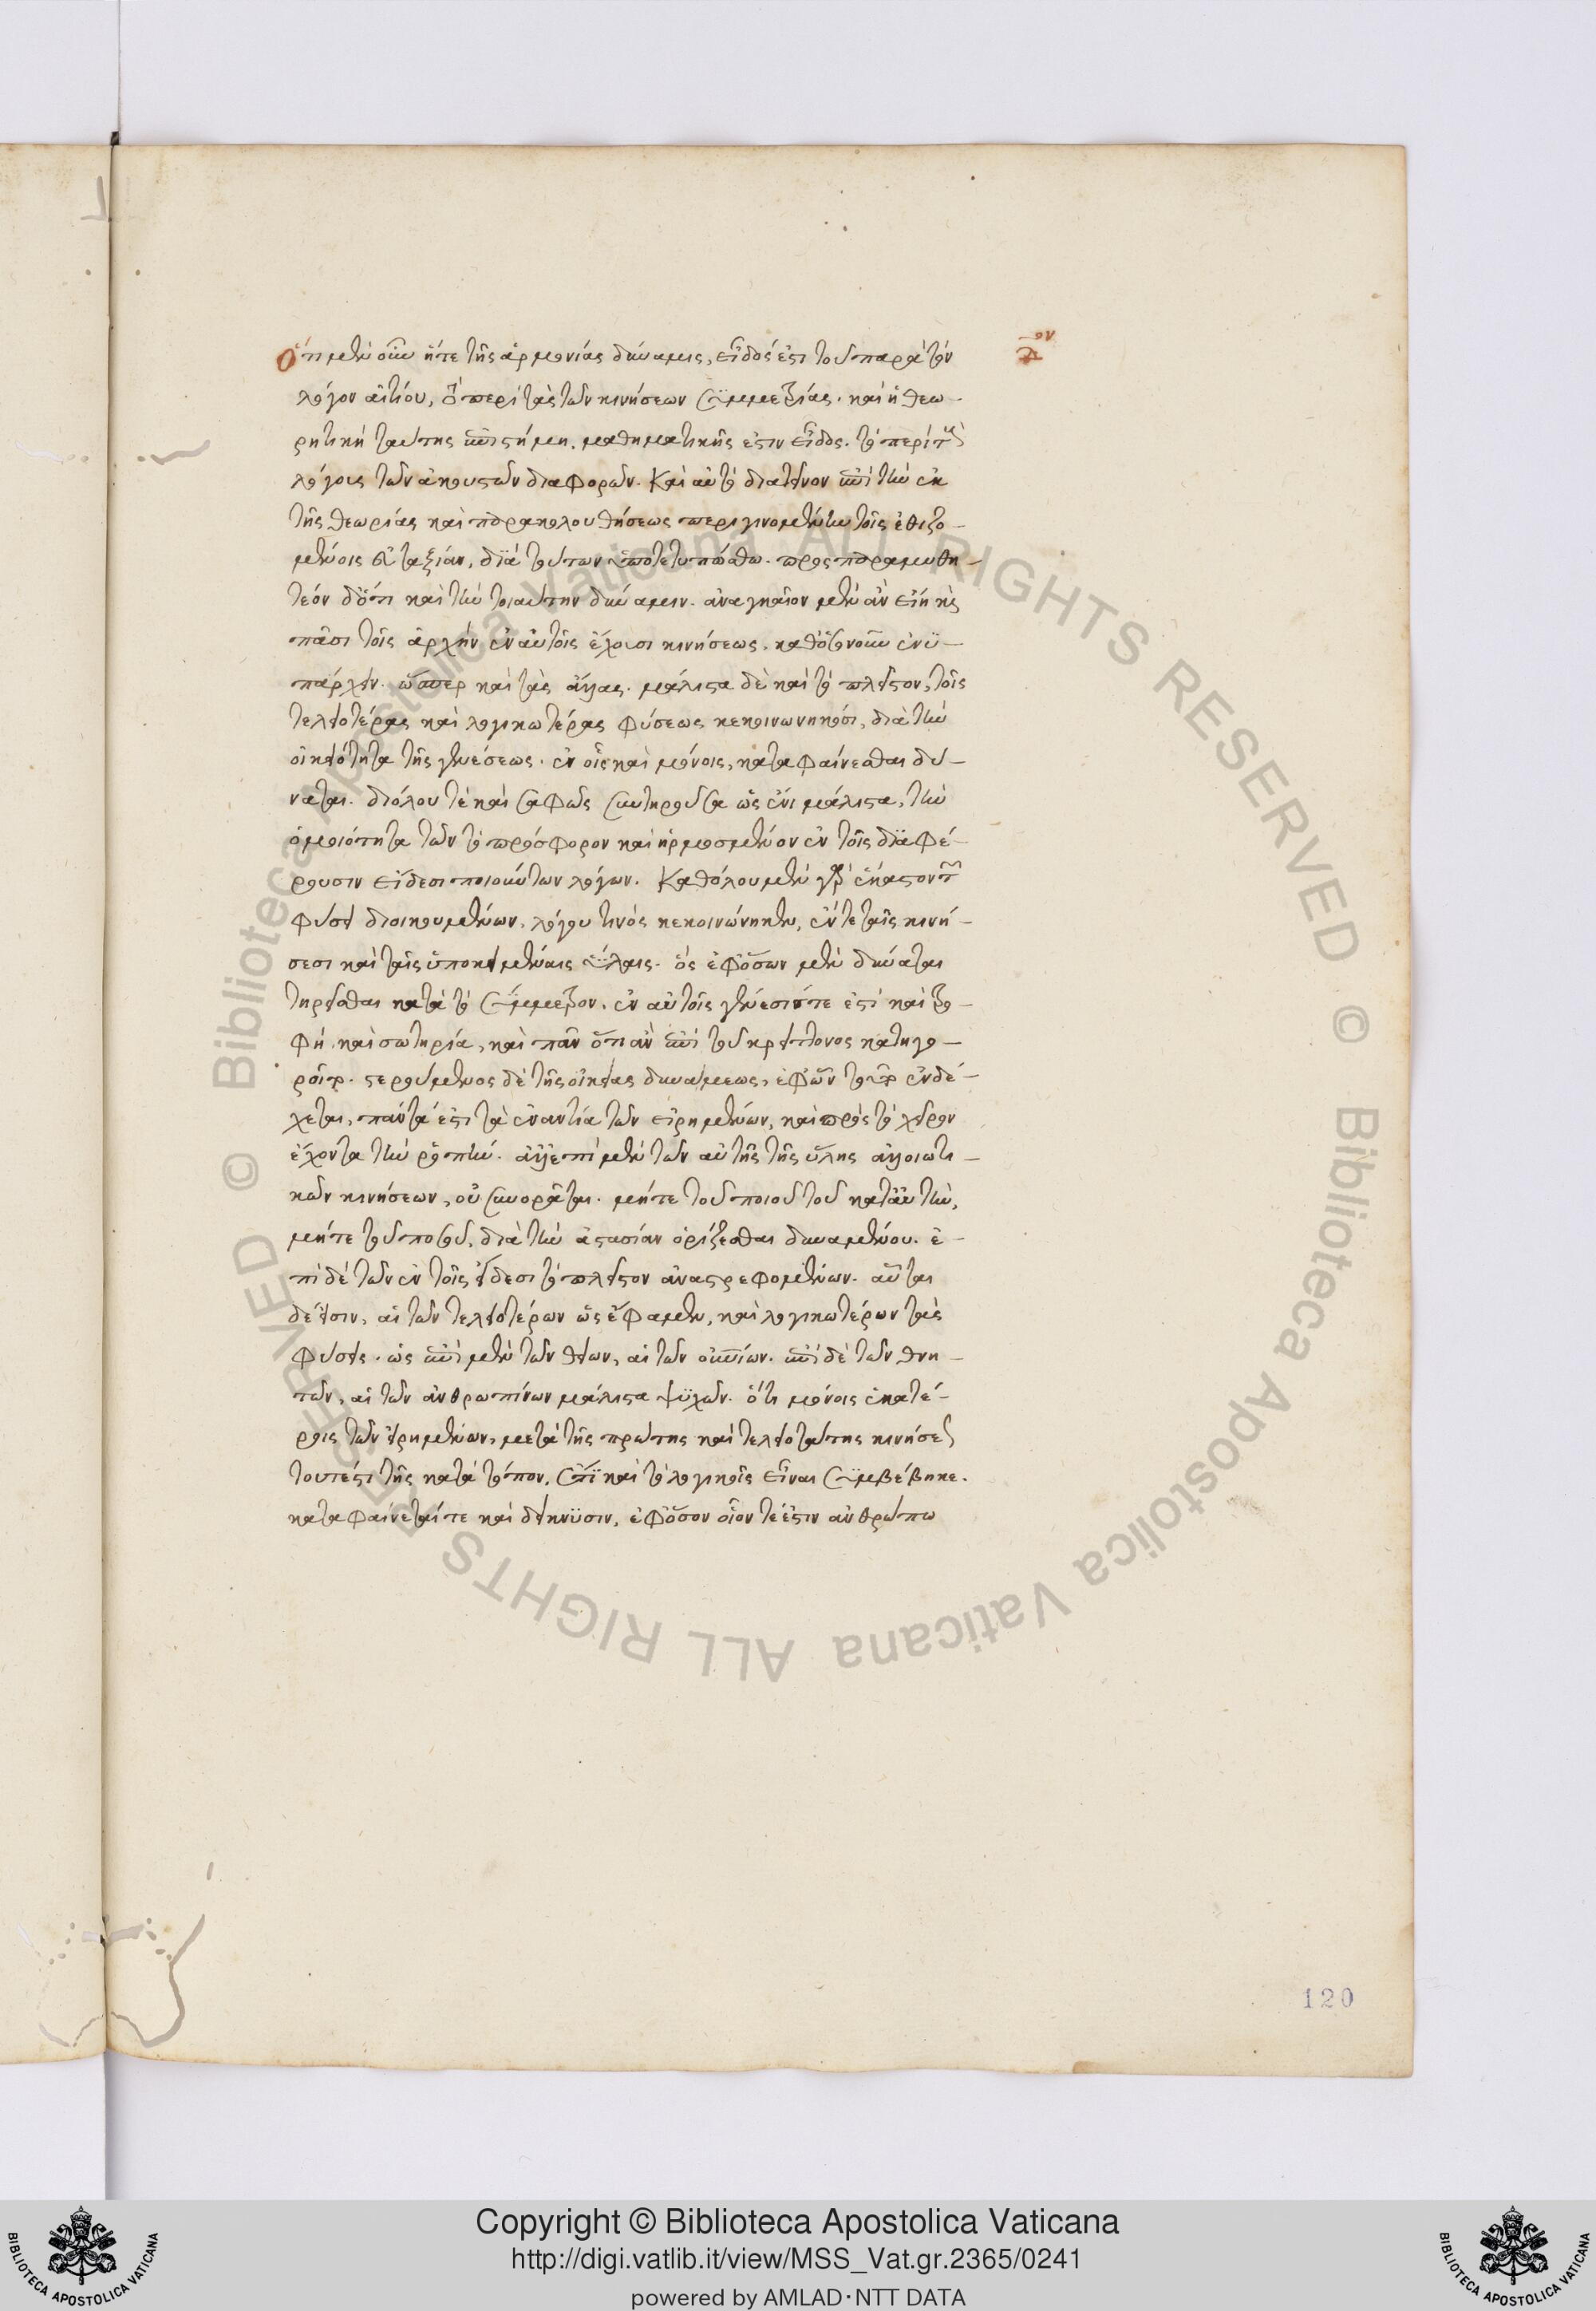 Ὅτι μὲν οὖν ἥτε τῆς ἁρμονίας δύναμις, εἶδός ἐστι τοῦ παρὰ τὸν
λόγον αἰτίου, ὃ περὶ τὰς τῶν κινήσεων συμμετρίας. καὶ ἡ θεω-
ρητικὴ ταύτης ἐπιστήμη. μαθηματικῆς ἐστιν εἶδος. τὸ περὶ τοὺς
λόγους τῶν ἀκουστῶν διαφορῶν. καὶ αὐτὸ διατεῖνον ἐπὶ τὴν ἐκ
τῆς θεωρίας καὶ παρακολουθήσεως περιγινομένην τοῖς ἐθιζο-
μένοις εὐταξίαν, διὰ τούτων ὑποτετυπώσθω. προσπαραμυθη-
τέον δὅτι καὶ τὴν τοιαύτην δύναμιν. ἀναγκαῖον μὲν ἂν εἴη καὶ
πᾶσι τοῖς ἀρχὴν ἐν αὑτοῖς ἔχουσι κινήσεως. καθόσονοῦν ἐνυ-
πάρχειν. ὥσπερ καὶ τὰς ἄλλας. μάλιστα δὲ καὶ τὸ πλεῖστον, τοῖς
τελειοτέρας καὶ λογικωτέρας φύσεως κεκοινωνηκόσι, διὰ τὴν
οἰκειότητα τῆς γενέσεως. ἐν οἷς καὶ μόνοις, καταφαίνεσθαι δύ-
ναται. διόλου τὲ καὶ σαφῶς συντηροῦσα ὡς ἔνι μάλιστα, τὴν
ὁμοιότητα τῶν τὸ πρόσφορον καὶ ἡρμοσμένον ἐν τοῖς διαφέ-
ρουσιν εἴδεσι ποιούντων λόγων. Καθόλου μὲν γὰρ ἕκαστον τῶν
φύσει διοικουμένων, λόγου τινὸς κεκοινώνηκεν, ἔν τε ταῖς κινή-
σεσι καὶ ταῖς ὑποκειμέναις ὕλαις. ὃς ἐφόσων μὲν δύναται
τηρεῖσθαι κατὰ τὸ σύμμετρον. ἐν αὐτοῖς γένεσίστε ἐστὶ καὶ τρο-
φὴ καὶ σωτηρία, καὶ πᾶν ὅτι ἂν ἐπὶ τοῦ κρείττονος κατηγο-
ροῖτο. στερούμενος δὲ τῆς οἰκείας δυνάμεως, ἐφὧν τοῦτο ἐνδέ-
χεται, πάντα ἐστὶ τὰ ἐναντία τῶν εἰρημένων, καὶ πρὸς τὸ χεῖρον
ἔχοντα τὴν ῥοπήν. ἀλλἐπὶ μὲν τῶν αὐτῆς τῆς ὕλης ἀλλοιωτι-
κῶν κινήσεων, οὐ συνορᾶται. μήτε τοῦ ποιοῦ τοῦ κατ᾽αὐτὴν,
μήτε τοῦ ποσοῦ, διὰ τὴν ἀστασίαν ὁρίζεσθαι δυναμένου. ἐ-
πὶ δὲ τῶν ἐν τοῖς εἴδεσι τὸ πλεῖστον ἀναστρεφομένων. αὗται
δέ εἰσιν, αἱ τῶν τελειοτέρων ὡς ἔφαμεν, καὶ λογικωτέρων τὰς
φύσεις. ὡς ἐπὶ μὲν τῶν θείων, αἱ τῶν οὐρανίων. ἐπὶ δὲ τῶν θνη-
τῶν, αἱ τῶν ἀνθρωπίνων μάλιστα ψυχῶν. ὅτι μόνοις ἑκατέ-
ροις τῶν εἰρημένων, μετὰ τῆς πρώτης καὶ τελειοτάτης κινήσεως
τουτέστι τῆς κατὰ τόπον, ἔτι καὶ τὸ λογικοῖς εἶναι συμβέβηκε.
καταφαίνεταί τε καὶ δείκνυσιν, ἐφόσον οἷόν τέ ἐστιν ἀνθρώπῳ
120
Copyright © Biblioteca Apostolica Vaticana
http://digi.vatlib.it/view/MSS_Vat.gr.2365/0241
powered by AMLAD·NTT DATA